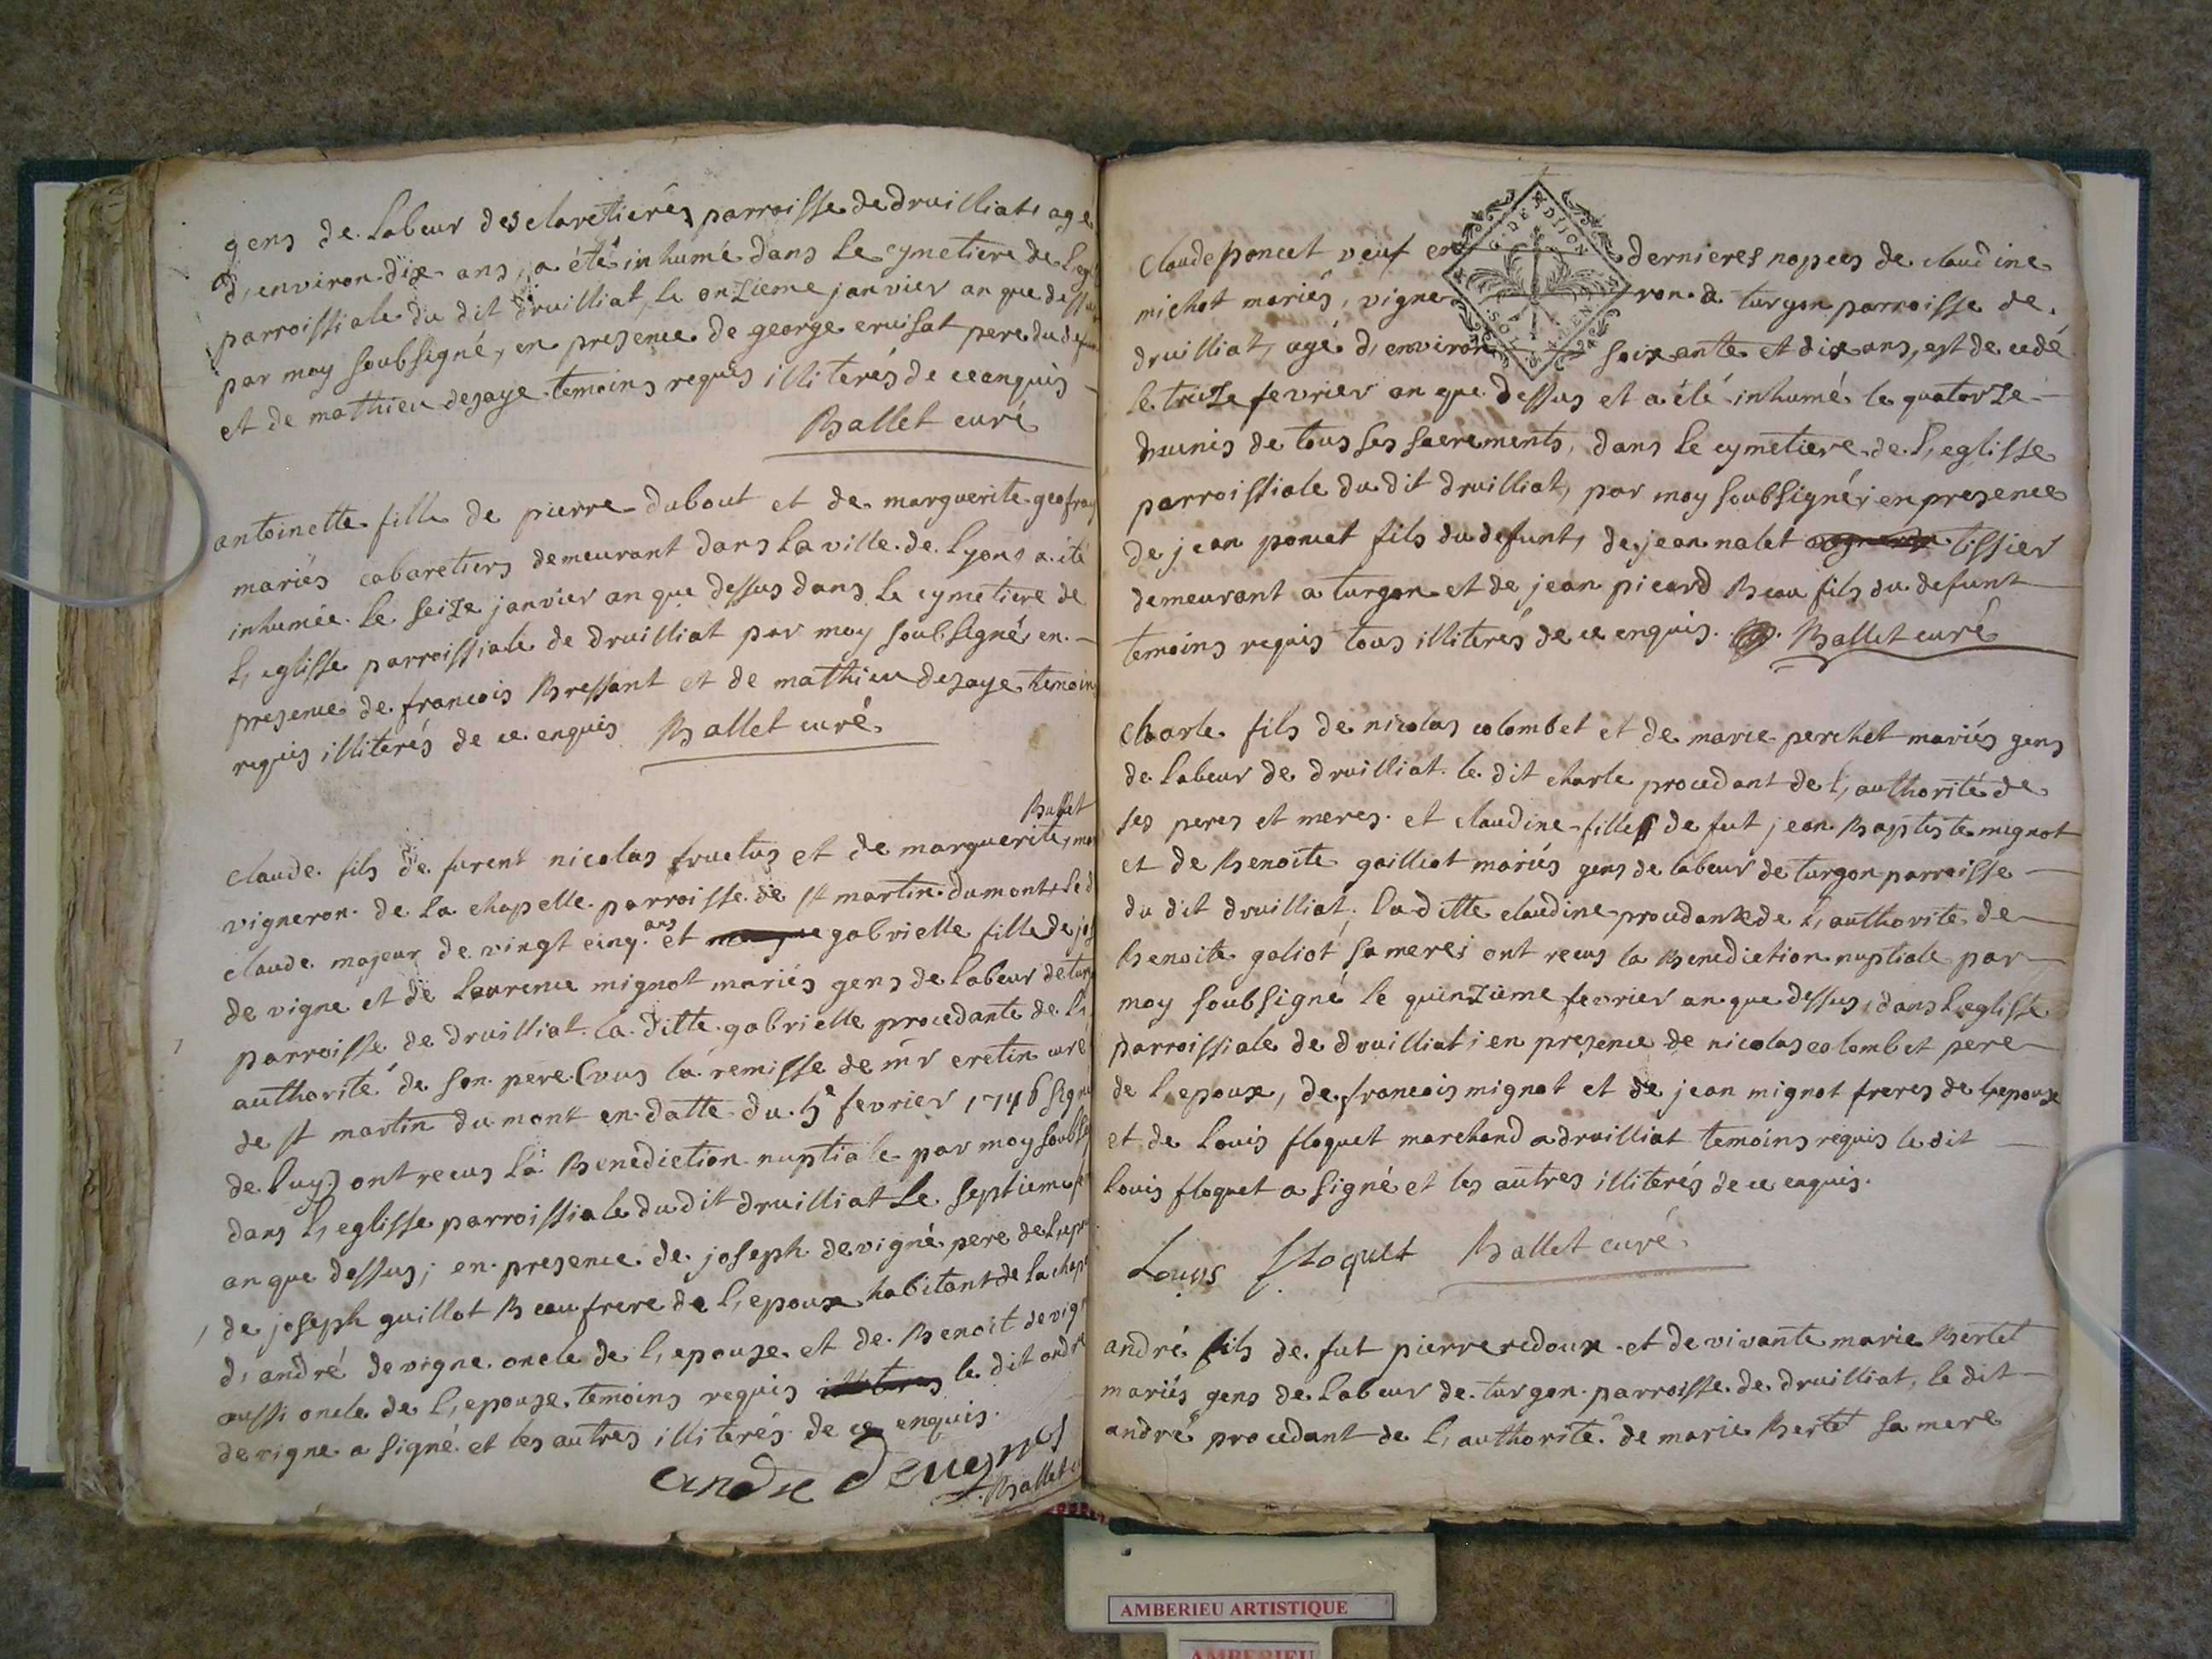 gens de labeur des claretieres parroisse de druilliat, agé
d, environ dix ans, a été inhumé dans le cymetiere de l, eg
parroissiale du dit druilliat, le onzieme janvier an que dessus
par moy soubsigné, en presence de george cruisat pere du defun
et de mathieu desaye temoins requis illiterés de ce enquis
Ballet curé
antoinette fille de pierre dubout et de marguerite geofray
mariés cabaretiers demeurant dans la ville de Lyons a été
inhumée le seize janvier an que dessus dans le cymetiere de
l, eglisse parroissiale de druilliat par moy soubsigné, en
presence de francois Bressant et de mathieu desaye temoins
requis illiterés de ce enquis Ballet curé
Ballet
claude fils de furent nicolas fructus et de marguerite, mar
vigneron de la chapelle parroisse de st martin du mont, le d
claude majeur de vingt cinq ans et gabrielle fille de jos
de vigne et de laurence mignot mariés gens de labeur de tur
parroisse de druilliat. la ditte gabrielle procedante de l,
authorité de son pere (vus la remisse de mr cretin curé
de st martin du mont en datte du 5e fevrier 1746 signé
de luy) ont recus la Benediction nuptiale par moy soubsig
dans l, eglisse parroissiale du dit druilliat le septieme fe
an que dessus; en presence de joseph devigne pere de l, epou
, de joseph guillot Beaufrere de l, epoux habitant de la chape
d, andré devigne oncle de l, epouse et de Benoit devign
aussi oncle de l, epouse temoins requis le dit andré
devigne a signé et les autres illiterés de ce enquis.
andre devignes
Ballet cu
claude poncet veuf en dernieres nopces de claudine
michot mariés, vigneron a turgon parroisse de
druilliat, agé d, environ soixante et dix ans, est decedé
le treize fevrier an que dessus et a été inhumé le quatorze
munis de tous ses sacrements, dans le cymetiere de l, eglisse
parroissiale du dit druilliat, par moy soubsigné; en presence
de jean poncet fils du defunt, de jean nalet tissier
demeurant a turgon et de jean picard Beau fils du defunt
temoins requis tous illiterés de ce enquis. Ballet curé
Charle fils de nicolas colombet et de marie perchet mariés gens
de labeur de druilliat. le dit charle procedant de l, authorité de
ses peres et meres. et claudine fille de fut jean Baptiste mignot
et de Benoite gailliot mariés gens de labeur de turgon parroisse
du dit druilliat, la ditte claudine procedante de l, authorité de
Benoite galiot sa mere; ont recus la Benediction nuptiale par
moy soubsigné le quinzieme fevrier an que dessus, dans l, eglisse
parroissiale de druilliat; en presence de nicolas colombet pere
de l, epoux, de francois mignot et de jean mignot freres de l, epouse
et de Louis floquet marchand a druilliat temoins requis le dit
Louis floquet a signé et les autres illiterés de ce enquis.
Louys floquet Ballet curé
andré fils de fut pierre redoux et de vivante marie Bertet
mariés gens de labeur de turgon parroisse de druilliat, le dit
andré procedant de l, authorité de marie Bertet sa mere
G. DE DIJON
AMBERIEU ARTISTIQUE
AMBERIEU